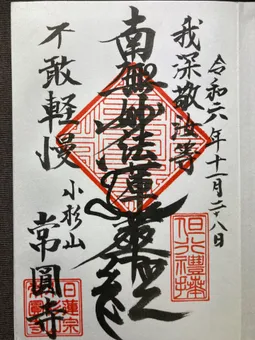 令和六年十一月二十八日
我深敬汝等
南無妙法蓮華経
不敢軽慢
小杉山
常圓寺
日蓮宗